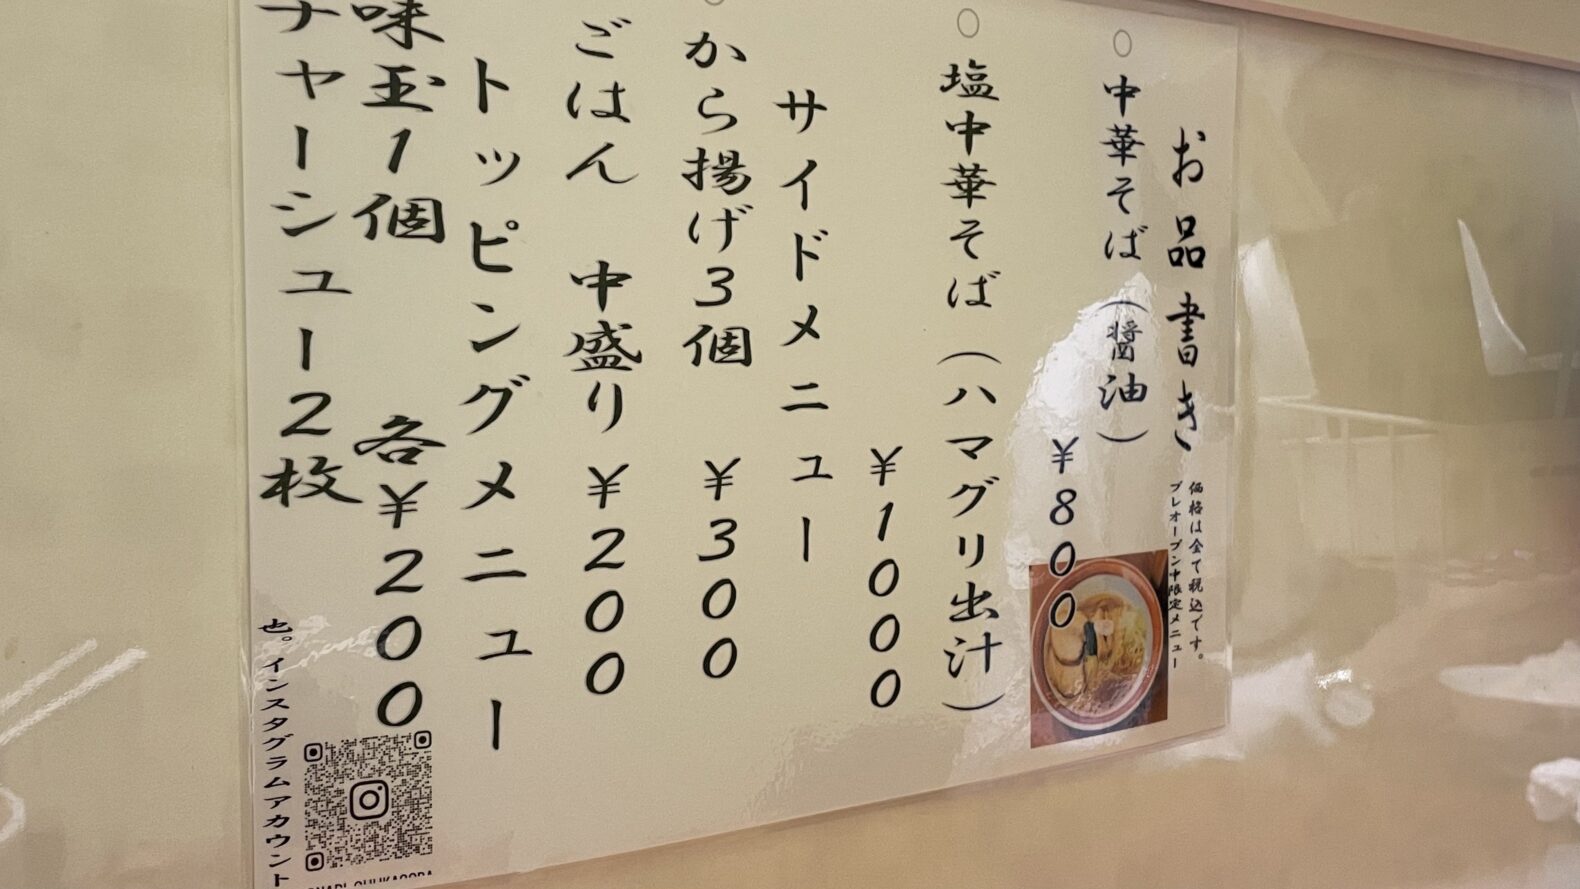 お品書き
価格は全て税込です。
プレオープン中限定メニュー
○中華そば（醤油）
¥800
○塩中華そば（ハマグリ出汁）
¥1000
サイドメニュー
から揚げ3個 ¥300
ごはん 中盛り ¥200
トッピングメニュー
味玉1個 各¥200
チャーシュー2枚
也。インスタグラムアカウント